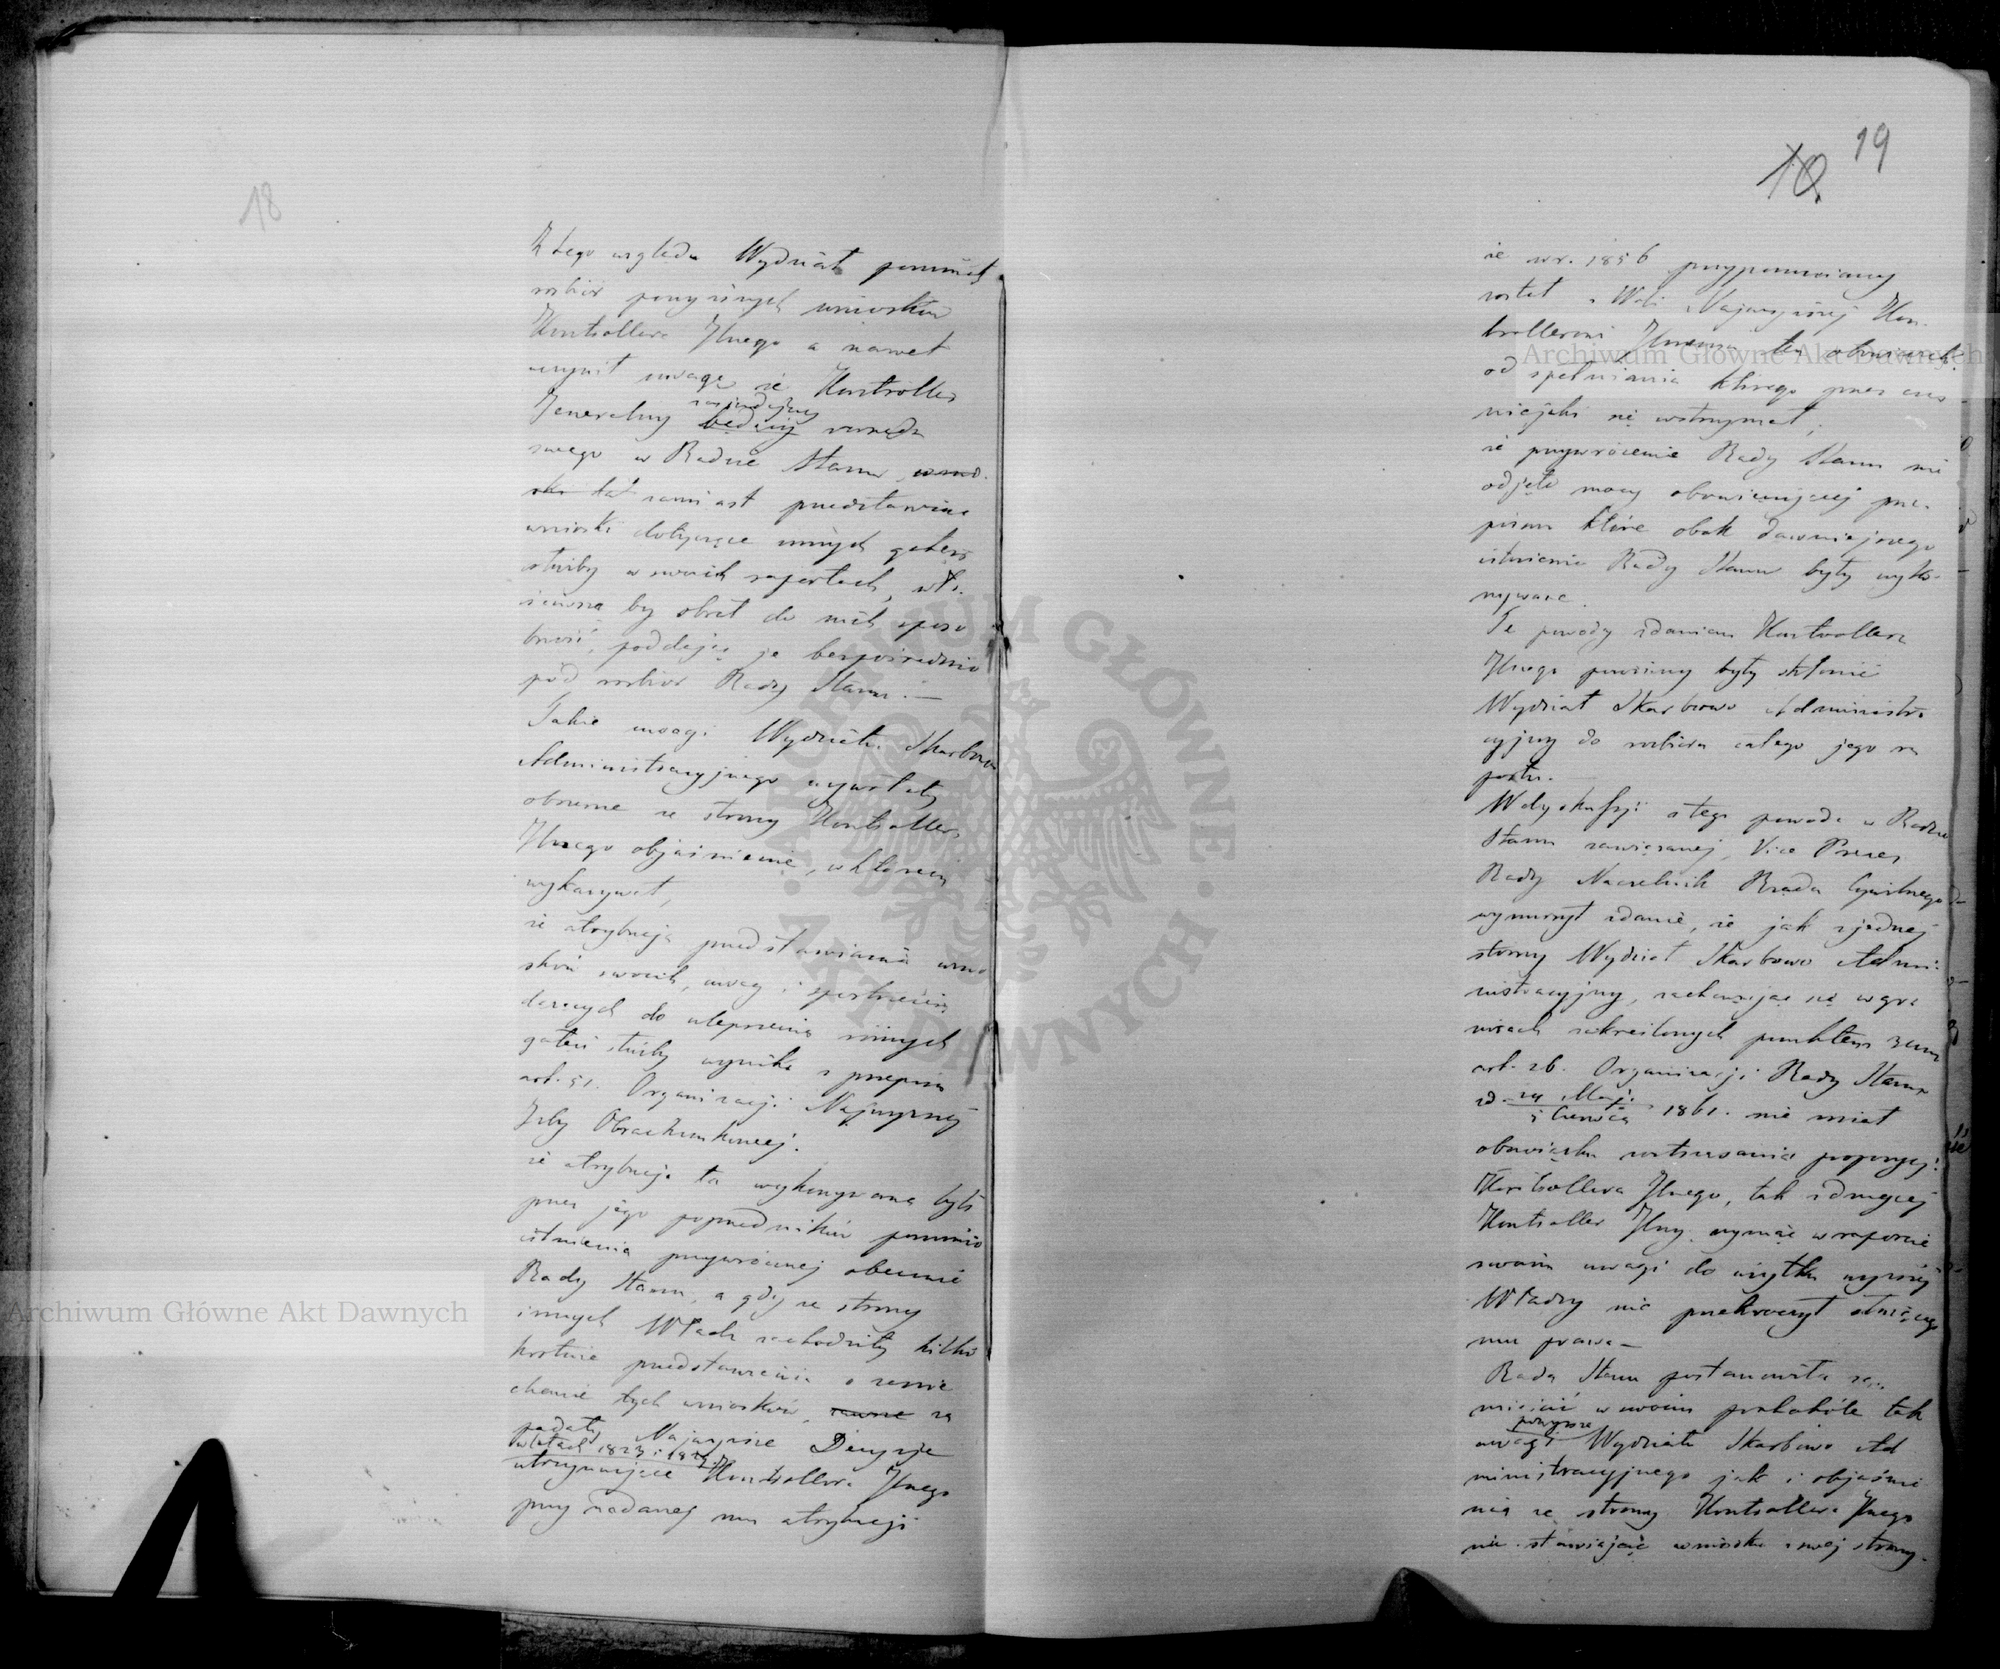 18
Z tego względu Wydział pominął
rozbiór powyższych wniosków
Kontrollera Jlnego a nawet
uczynił uwagę że Kontroller
Jeneralny będący z urzędu
zasiadający
swego w Radzie Stanu
zamiast przedstawiać
wnioski dotyczące różnych gałęzi
służby w swoich raportach, wła-
ściwszą by obrał do nich sposo
bność, poddając je bezpośrednio
pod rozbiór Rady Stanu. —
Takie uwagi Wydziału Skarbowo
Administracyjnego wywołały
obszerne ze strony Kontrollera
Jlnego objaśnienie, w którem
wykazywał,
że atrybucja przedstawiania wnio
sków swoich, uwag i spostrzeżeń
dążących do ulepszenia różnych
gałęzi służby wynika z przepisu
art. 51. Organizacji Najwyższej
Izby Obrachunkowej.
że atrybucja ta wykonywana była
przez jego poprzedników pomimo
istnienia przywróconej obecnie
Rady Stanu, a gdy ze strony
innych Władz zachodziły kilka
krotnie przedstawienia o zanie
chanie tych wniosków, za
padały Najwyższe Decyzje
w latach 1823 i
utrzymujące Kontrollera Jlnego
przy nadanej mu atrybucji
19
10
że w r. 1856 przypomniany
został z Woli Najwyższej Kon-
trollerowi Jlnemu ten obowiązek
od spełniania którego przez czas
niejaki się wstrzymał;
że przywrócenie Rady Stanu nie
odjęło mocy obowiązującej prze-
pisom które obok dawniejszego
istnienia Rady Stanu były wyko-
nywane.
Te powody zdaniem Kontrollera
Jlnego powinny były skłonić
Wydział Skarbowo Administra
cyjny do rozbioru całego jego ra
portu.
W dyskussyi z tego powodu w Radzie
Stanu zawiązanej, Vice Prezes
Rady Naczelnik Rządu Cywilnego
wynurzył zdanie, że jak z jednej
strony Wydział Skarbowo Admi-
nistracyjny, zachowując się w gra
nicach zakreślonych punktem 3cim
art. 26. Organizacji Rady Stanu
z d. 24 Maja
5 Czerwca 1861. nie miał
obowiązku roztrząsania propozycji
Kontrollera Jlnego, tak z drugiej
Kontroller Jlny, czyniąc w raporcie
swoim uwagi do użytku wyższej
Władzy nie przekroczył służącego
mu prawa —
Rada Stanu postanowiła za-
mieścić w swoim protokóle tak
powyższe
uwagi Wydziału Skarbowo Ad
ministracyjnego jak i objaśnie
nia ze strony Kontrollera Jlnego
nie stawiając wniosku z swej strony.
Archiwum Główne Akt Dawnych
Archiwum Główne Akt Dawnych
ARCHIWUM GŁÓWNE AKT DAWNYCH